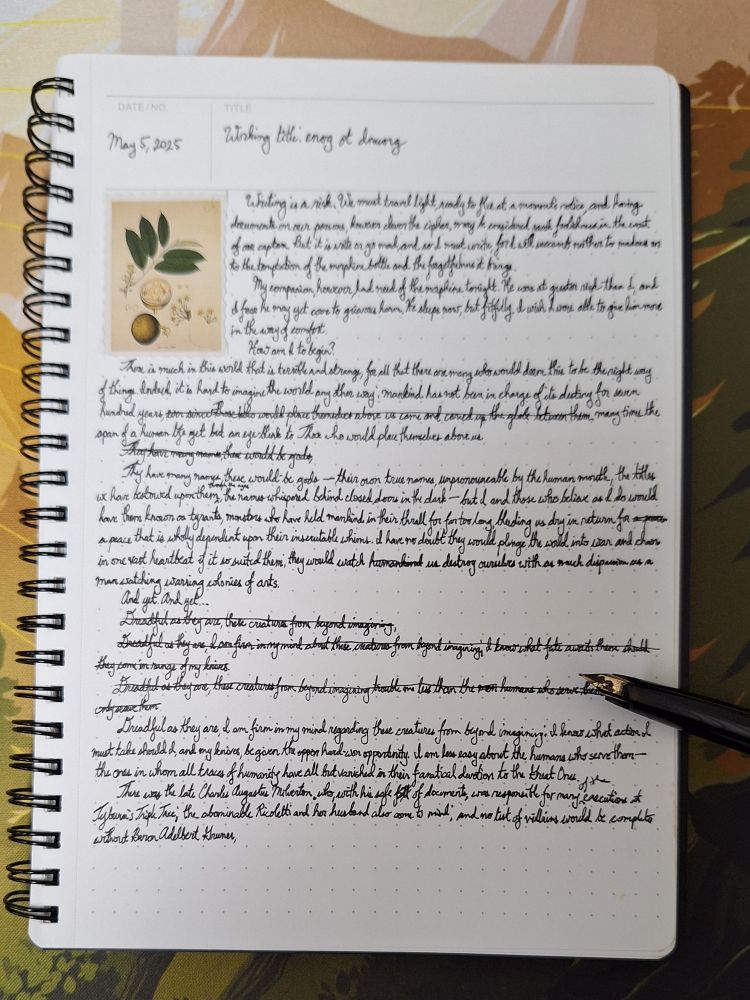 DATE/NO.
TITLE
May 5, 2025
Working title: enog ot
Writing is a risk. We must travel light, ready to flee at a moment's notice, and having
documents on our persons, however clever the cipher, may be considered rank foolishness in the
of our captain. But it is write or go mad, and so I must write for I will succumb neither to madness nor
to the temptation of the morphine bottle and the forgetfulness it brings.
My companion, however, had need of the morphine tonight. He was at greater risk than I, and
I fear he may yet come to grievous harm. He sleeps now, but fitfully. I wish I were able to give him more
in the way of comfort.
How am I to begin?
There is much in this world that is terrible and strange, for all that there are many who would deem this to be the right way
of things. Indeed it is hard to imagine the world any other way; mankind has not been in charge of its destiny for seven
hundred years, ever since those who would place themselves above us came and carved up the globe between them, many times the
span of a human life yet but an eye-blink to Those who would place themselves above us.
They have many names, these would be gods,
They have many names, these would-be gods — their own true names, unpronounceable by the human mouth, the titles
we have bestowed upon them, the names whispered behind closed doors in the dark — but I and those who believe as I do would
have them known as tyrants, monsters who have held mankind in their thrall for far too long, bleeding us dry in return for a peace
a peace that is wholly dependent upon their inscrutable whims. I have no doubt they would plunge the world into war and chaos
in one vast heartbeat if it so suited them; they would watch humankind us destroy ourselves with as much dispassion as a
man watching warring colonies of ants.
And yet. And yet...
Dreadful as they are, these creatures from beyond imagining,
Dreadful as they are, I am firm in my mind about these creatures from beyond imagining; I know what fate awaits them should
they come in range of my knives.
Dreadful as they are, these creatures from beyond imagining trouble me less than the humans who serve them
only serve them
Dreadful as they are, I am firm in my mind regarding these creatures from beyond imagining; I know what action I
must take should I, and my knives, be given the oppor hard-won opportunity. I am less easy about the humans who serve them —
the ones in whom all traces of humanity have all but vanished in their fanatical devotion to the Great Ones.
There was the late Charles Augustus Milverton, who, with his safe full of documents, was responsible for many executions at
Tyburn's Triple Tree; the abominable Ricoletti and her husband also come to mind; and no list of villains would be complete
without Baron Adelbert Gruner,